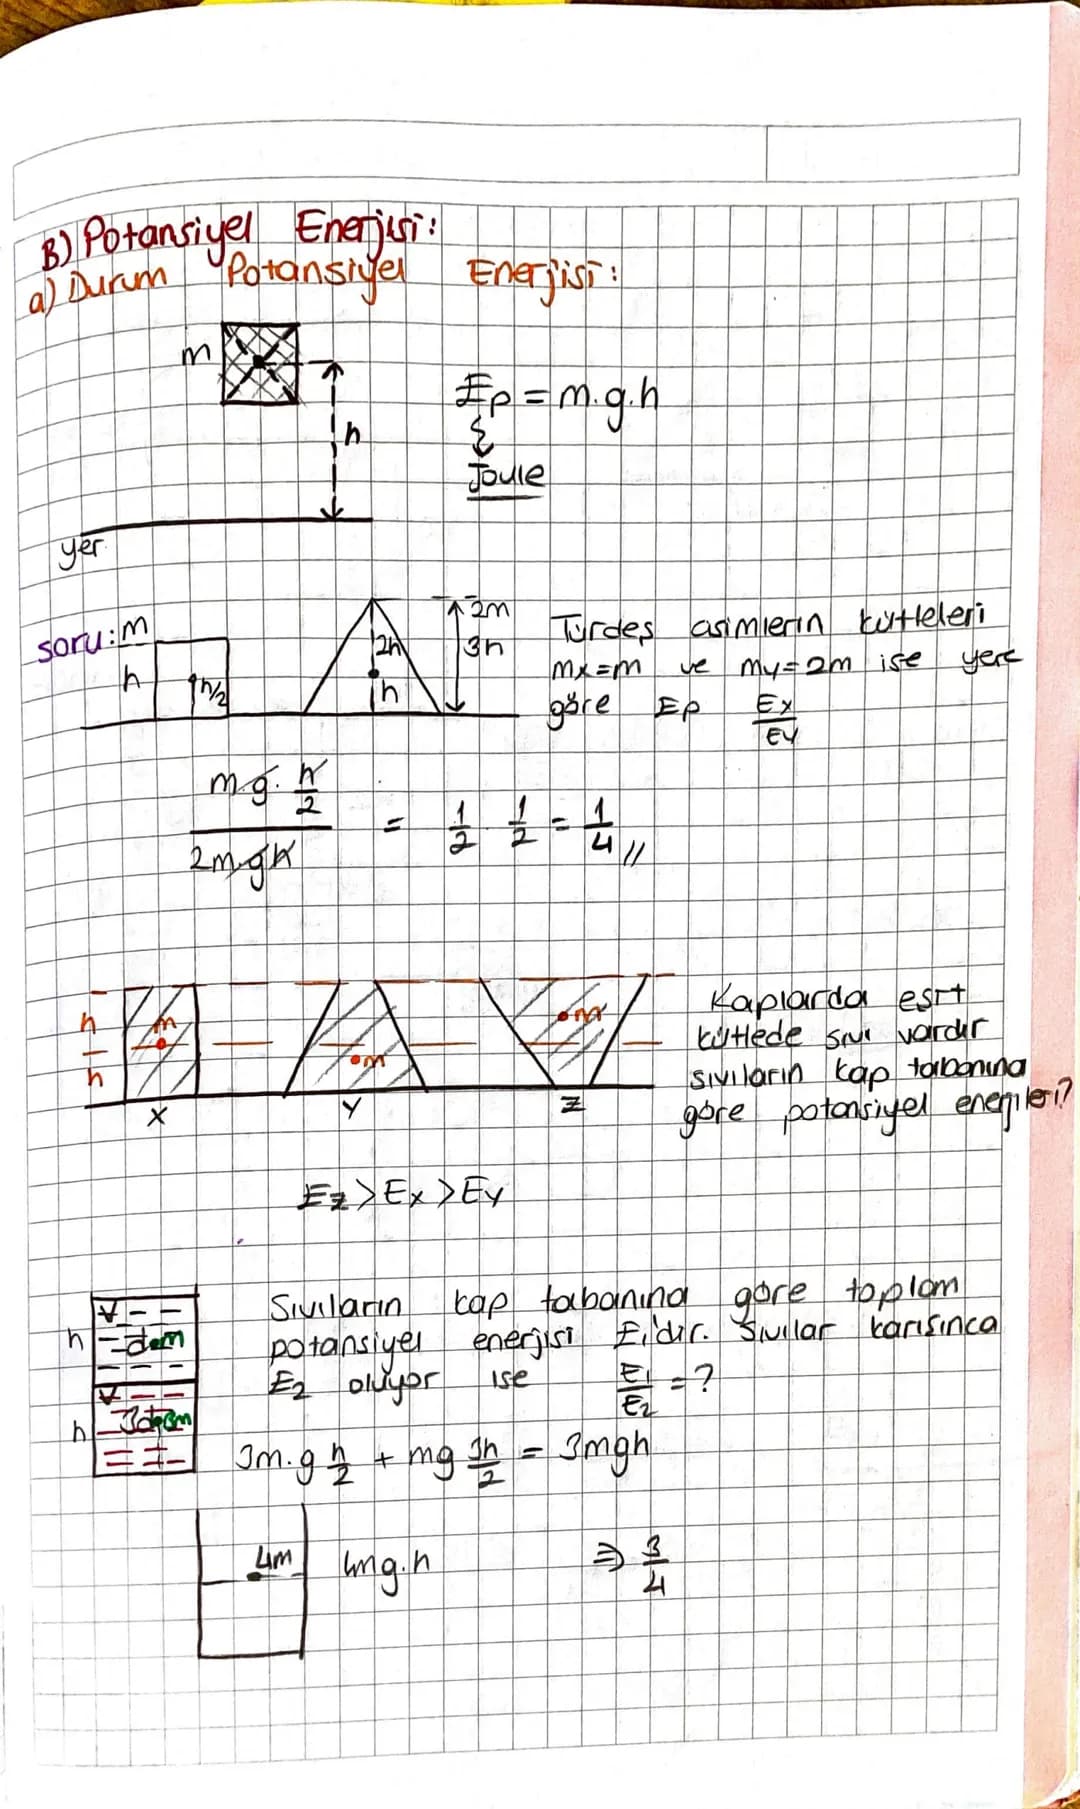 B) Potansiyel Enerjisi:
a) Durum Potansiyel Enerjisi:
m
h
Ep = m.g.h
Joule
yer
soru: m
h
h/2
2h
h
2m
3h
Türdeş cisimlerin kütleleri
mx=m ve my=2m ise yere
göre Ep Ex/Ey
m.g.h/2 / 2m.g.h = 1/2 . 1/2 = 1/4 //
h
h
m
m
m
X Y Z
Kaplarda eşit
kütlede sıvı vardır
sıvıların kap tabanına
göre potansiyel enerjileri?
Ez > Ex > Ey
h
V
dam
h
V
3dam
Sıvıların kap tabanına göre toplam
potansiyel enerjisi E₁'dir. Sıvılar karışınca
E₂ oluyor ise E₁/E₂ = ?
3m.g h/2 + mg 3h/2 = 3mgh
4m
4mg.h
⇒ 3/4